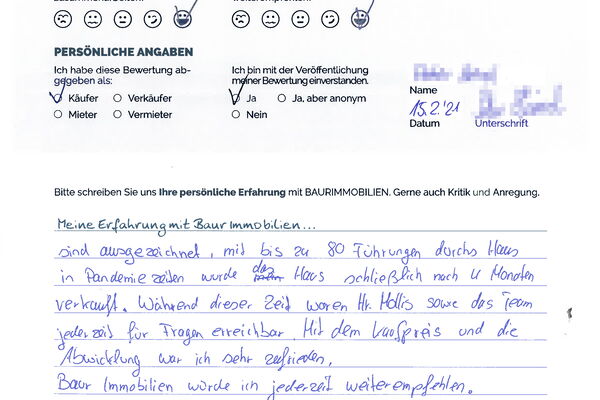 PERSÖNLICHE ANGABEN
Ich habe diese Bewertung ab-
gegeben als:
Käufer
Verkäufer
Mieter
Vermieter
Ich bin mit der Veröffentlichung
meiner Bewertung einverstanden.
Ja
Ja, aber anonym
Nein
Name
15.2.'21
Datum
Unterschrift
Bitte schreiben Sie uns Ihre persönliche Erfahrung mit BAURIMMOBILIEN. Gerne auch Kritik und Anregung.
Meine Erfahrung mit Baur Immobilien...
sind ausgezeichnet, mit bis zu 80 Führungen durchs Haus
in Pandemiezeiten wurde das Haus schließlich nach 4 Monaten
verkauft. Während dieser Zeit waren Hr. Hollis sowie das Team
jederzeit für Fragen erreichbar. Mit dem Kaufpreis und die
Abwicklung war ich sehr zufrieden.
Baur Immobilien würde ich jederzeit weiterempfehlen.